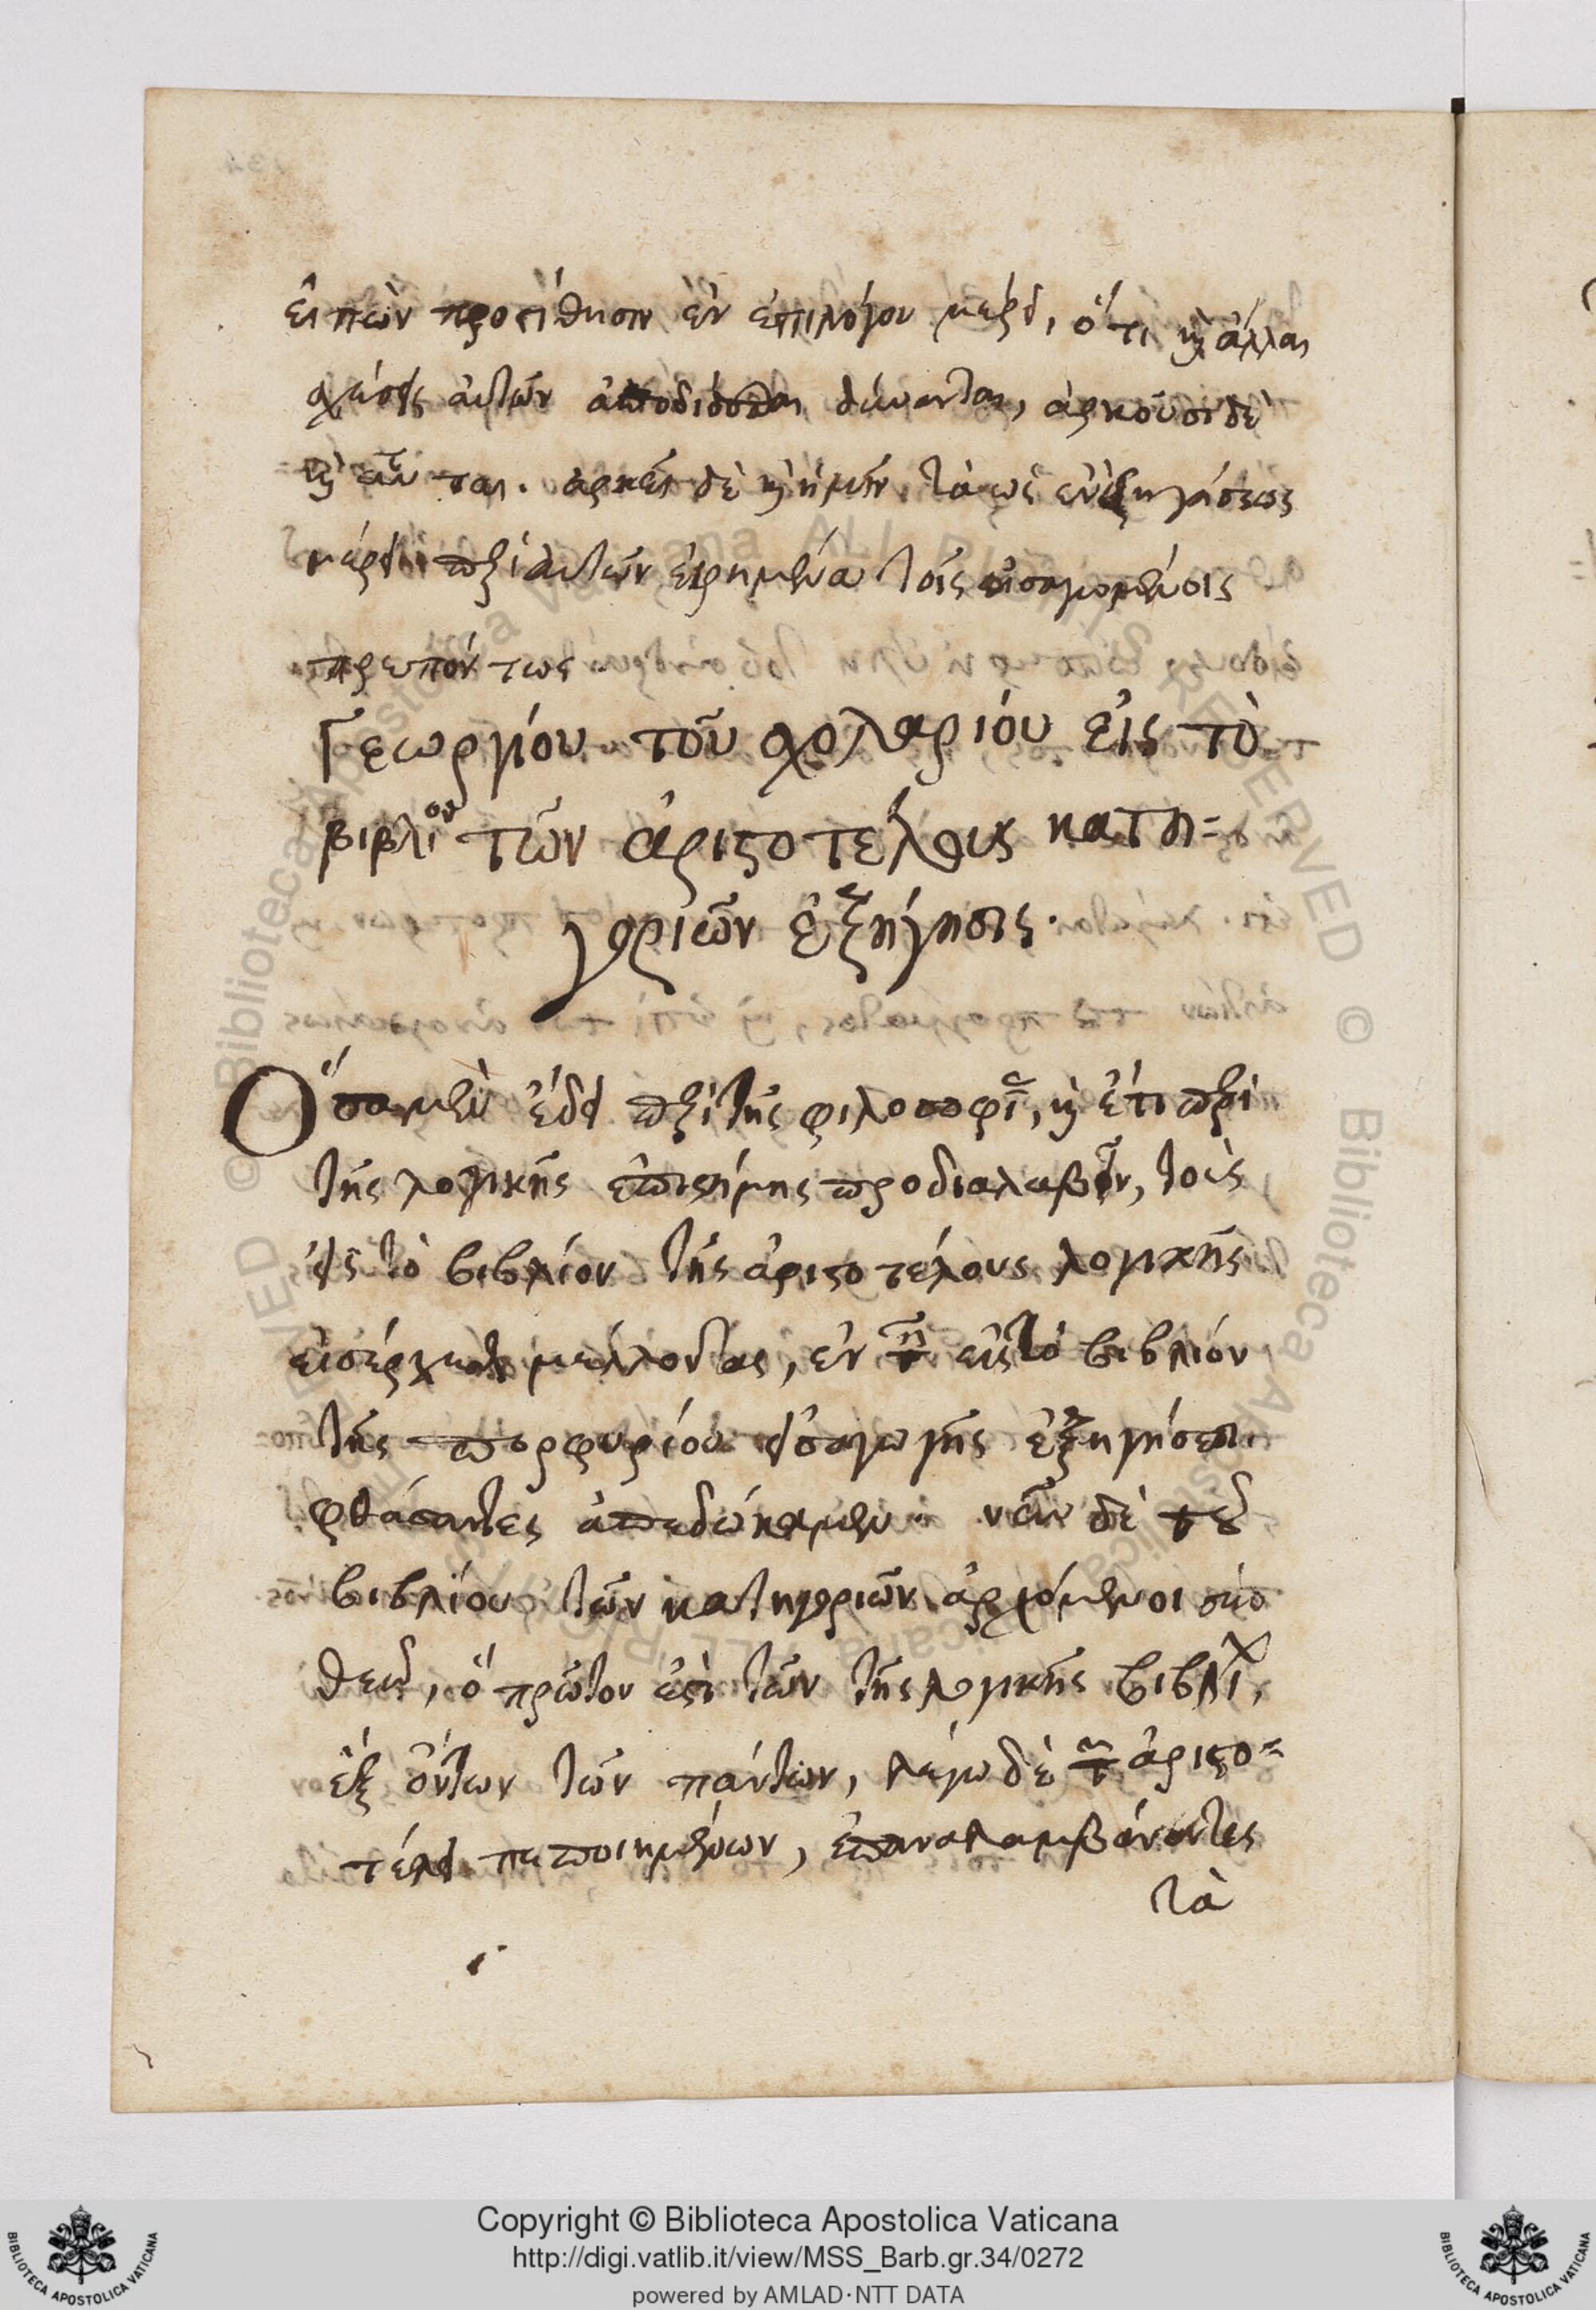 εἰπὼν προστίθησιν ἐν ἐπιλόγου μέρει, ὅτι καὶ ἄλλαι
σχέσεις αὐτῶν ἀποδίδοσθαι δύνανται, ἀρκοῦσι δὲ
καὶ αὗται. ἀρκεῖ δὲ καὶ ἡμῖν τὰ ὡς ἐν ἐξηγήσεως
μέρει περὶ αὐτῶν εἰρημένα τοῖς εἰσαγομένοις
πρεπόντως
Γεωργίου τοῦ σχολαρίου εἰς τὸ
βιβλίον τῶν ἀριστοτέλους κατη=
γοριῶν ἐξήγησις.
Ὅσα μὲν ἔδει περὶ τῆς φιλοσοφίας, καὶ ἔτι περὶ
τῆς λογικῆς ἐπιστήμης προδιαλαβεῖν, τοὺς
εἰς τὸ βιβλίον τῆς ἀριστοτέλους λογικῆς
εἰσέρχεσθαι μέλλοντας, ἐν τῇ εἰς τὸ βιβλίον
τῆς πορφυρίου εἰσαγωγῆς ἐξηγήσει
φθάσαντες ἀπεδώκαμεν. νῦν δὲ τοῦ
βιβλίου τῶν κατηγοριῶν ἀρχόμενοι σὺν
θεῷ, ὃ πρῶτον ἐστὶ τῶν τῆς λογικῆς βιβλίων,
ἓξ ὄντων τῶν πάντων, λέγω δὲ τῶν ἀριστο=
τέλει πεποιημένων, ἐπαναλαμβάνοντες
τὰ
Copyright © Biblioteca Apostolica Vaticana
http://digi.vatlib.it/view/MSS_Barb.gr.34/0272
powered by AMLAD·NTT DATA